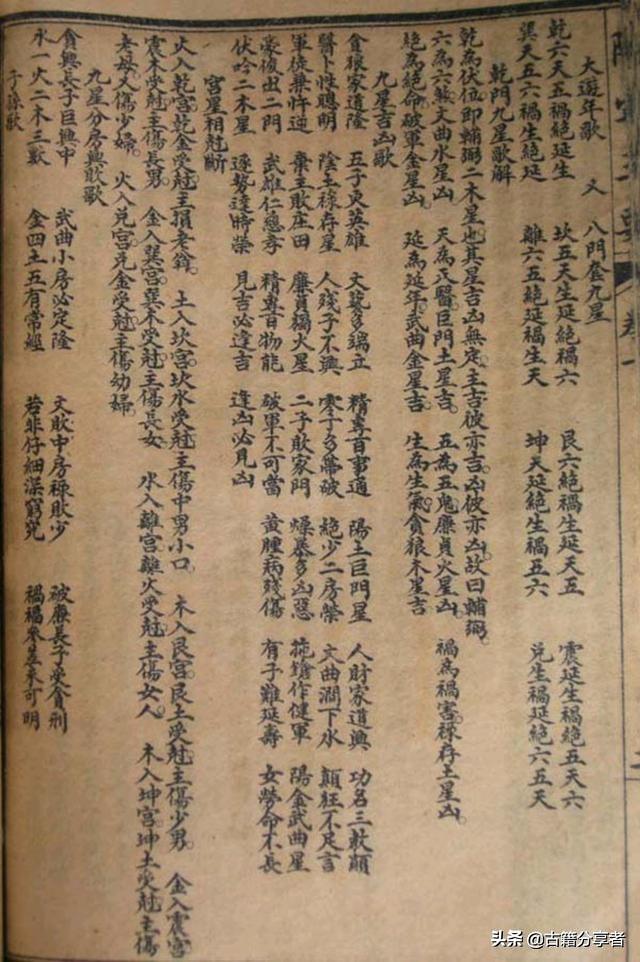 陽宅三要 卷一
大遊年歌 又 八門套九星
乾六天五禍絶延生 坎五天生延絶禍六 艮六絶禍生延天五 震延生禍絶五天六
巽天五六禍生絶延 離六五絶延禍生天 坤天延絶生禍五六 兌生禍延絶六五天
乾門九星歌解
乾為伏位即輔弼二木星也其星吉凶無定主吉彼亦吉凶彼亦凶故曰輔弼
六為六煞文曲水星凶 天為天醫巨門土星吉 五為五鬼廉貞火星凶 禍為禍害祿存土星凶
絶為絶命破軍金星凶 延為延年武曲金星吉 生為生氣貪狼木星吉
九星吉凶歌
貪狼家道隆 五子更英雄 文藝多端立 精專百事通 陽土巨門星 人財家道興 功名三教顯
醫卜性聰明 陰土祿存星 人殘子不興 寡子多帶破 絶少二房榮 文曲澗下水 顛狂不足言
軍徒兼忤逆 棄主敗庄田 廉貞獨火星 二子敗家門 燥暴多凶惡 拖鎗作健軍 陽金武曲星
豪俊出二門 武雄仁總孝 精專百物能 破軍不可當 黃腫病殘傷 有子難延壽 女勞命不長
伏吟二木星 逐勢達時榮 見吉必逢吉 逢凶必見凶
宮星相尅斷
火入乾宮乾金受尅主損老翁 土入坎宮坎水受尅主傷中男小口 木入艮宮艮土受尅主傷少男 金入震宮
震木受尅主傷長男 金入巽宮巽木受尅主傷長女 水入離宮離火受尅主傷女人 木入坤宮坤土受尅主傷
老母又傷少婦 火入兌宮兌金受尅主傷幼婦
九星分房興敗歌
貪興長子巨興中 武曲小房必定隆 文敗中房祿敗少 被廉長子受貪刑
水一火二木三數 金四土五有常經 若非仔細深窮究 禍福參差未可明
子孫歌
头条 @古籍分享者